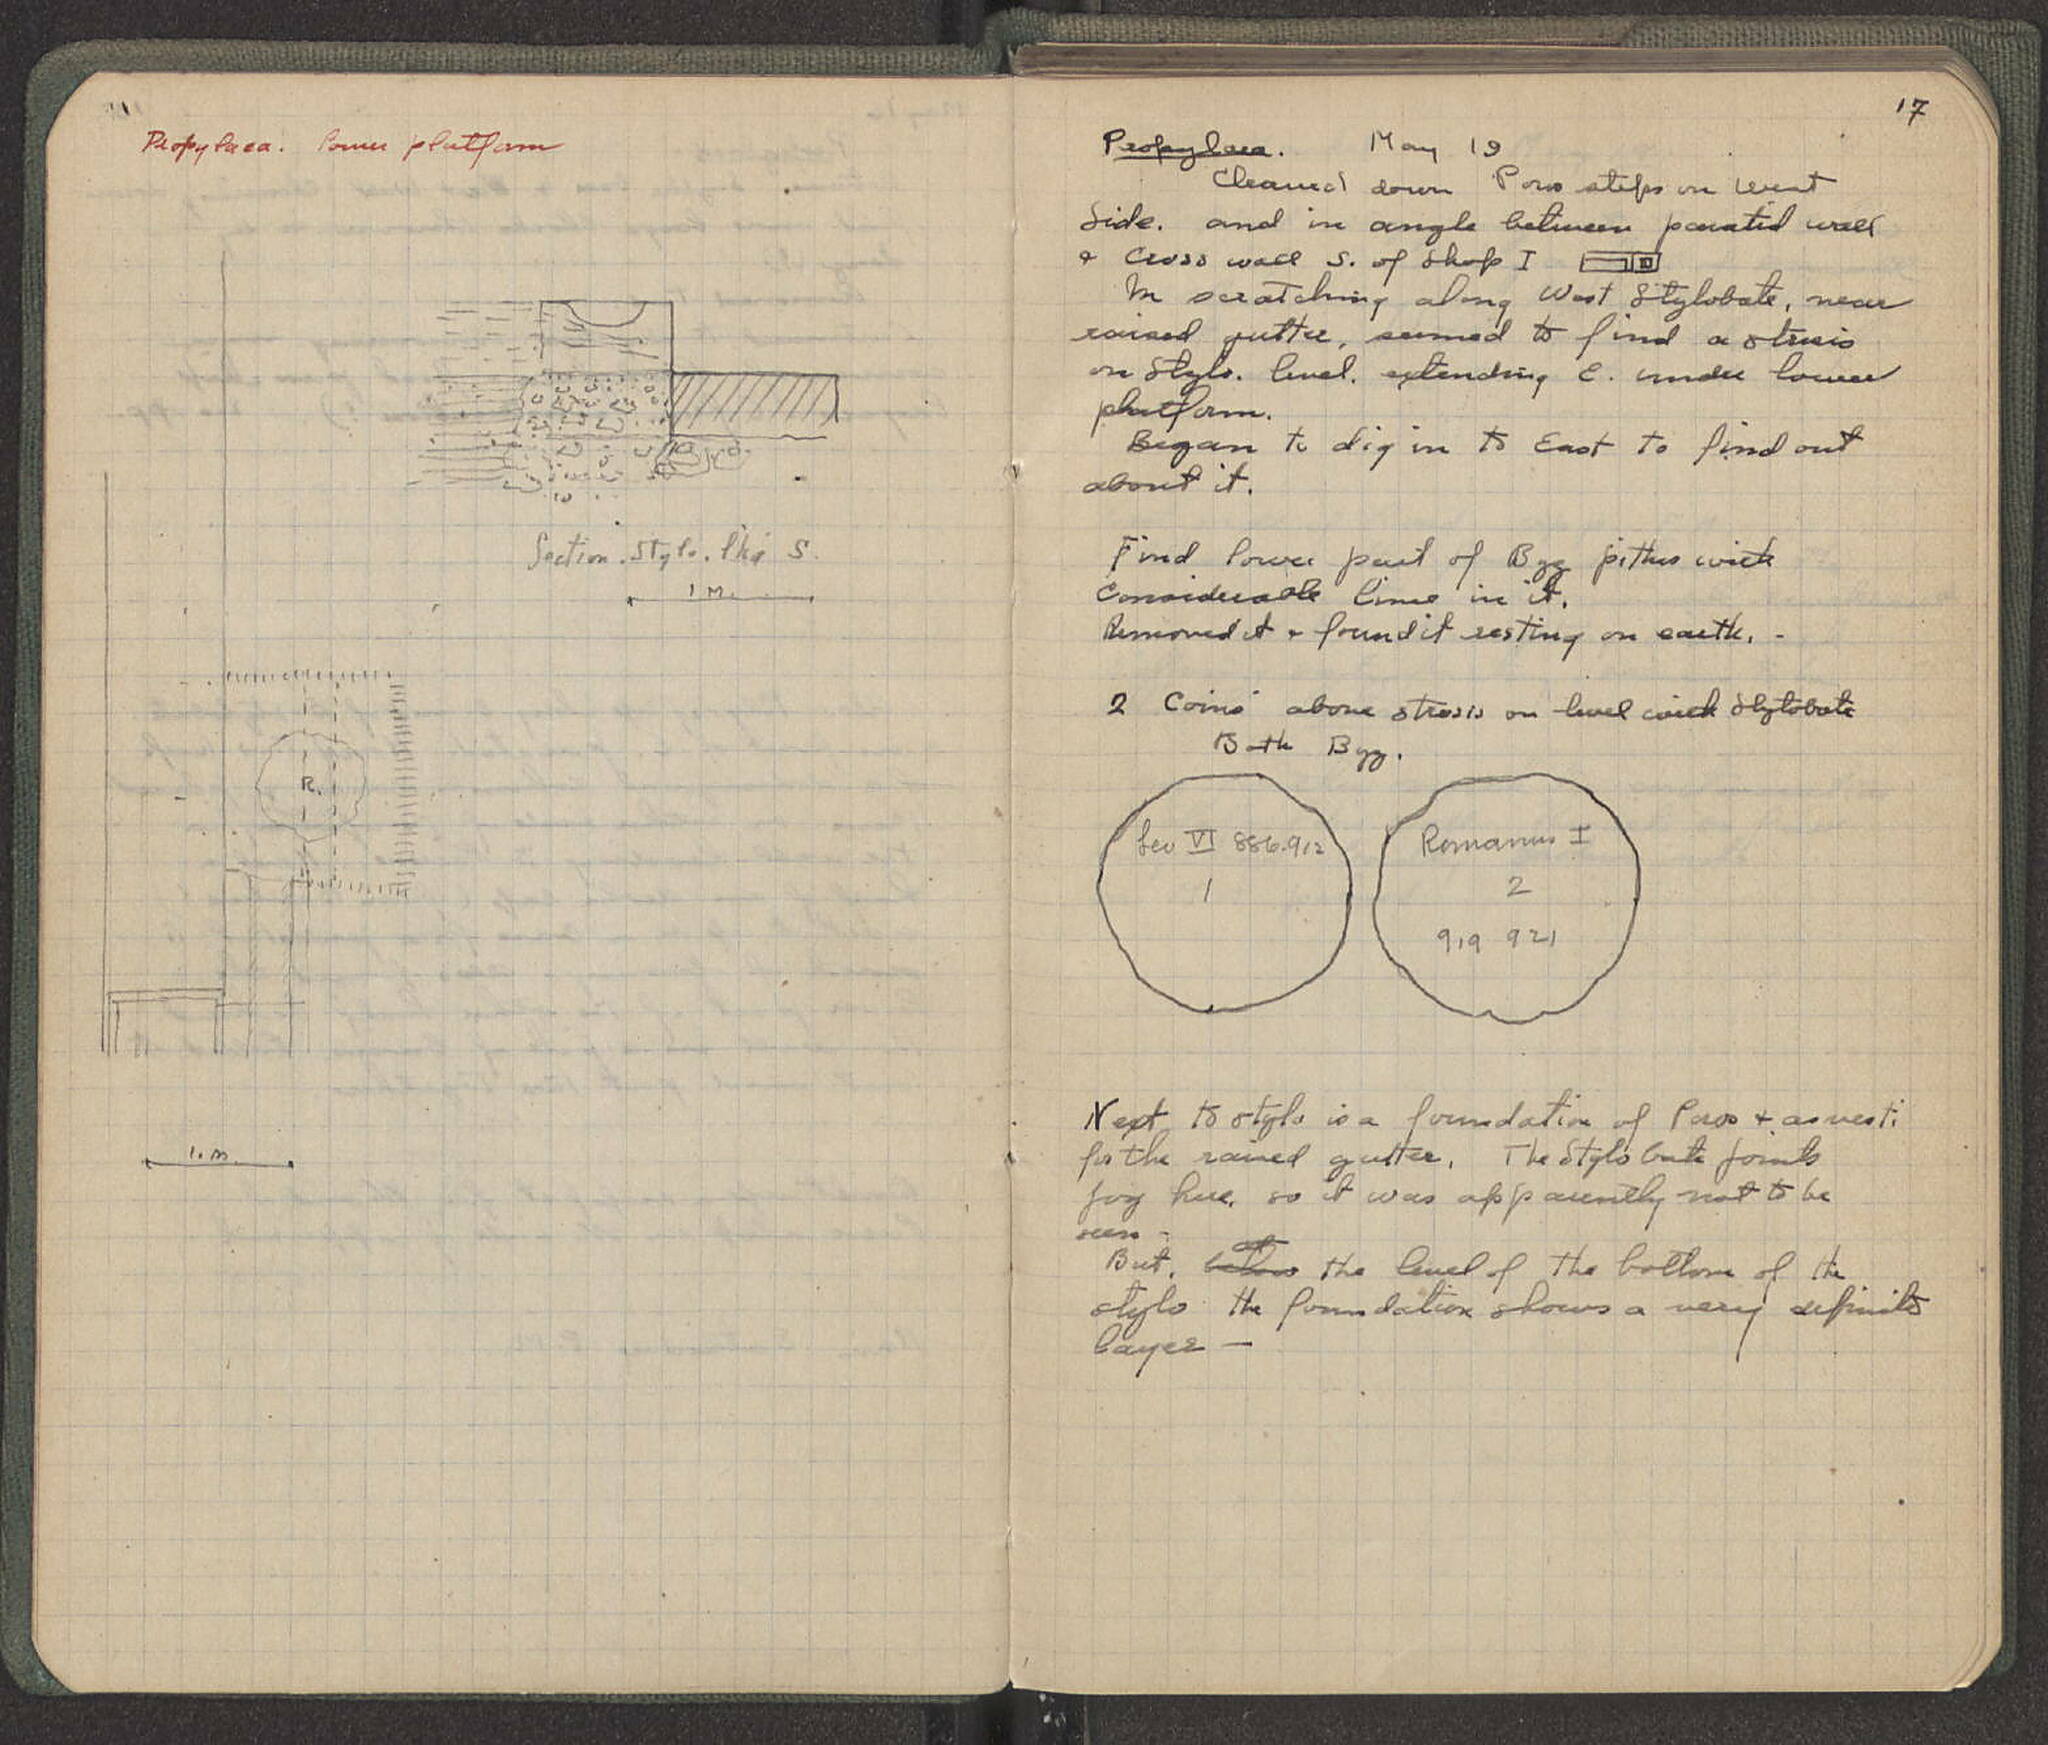 Propylaea. Lower platform
Section. Stylo. lkg S.
1 M.
R.
1. m.
17
Propylaea. May 19
Cleaned down Poros steps on West
Side. and in angle between painted wall
+ Cross wall S. of Shop I
In scratching along West Stylobate, near
raised gutter, seemed to find a strosis
on Stylo. level. extending E. under lower
platform.
Began to dig in to East to find out
about it.
Find lower part of Byz pithos with
Considerable lime in it.
Removed it + found it resting on earth. -
2 Coins above strosis on level with Stylobate
Both Byz.
Leo VI 886.912
1
Romanus I
2
919 921
Next to stylo is a foundation of Poros + asvesti
for the raised gutter. The Stylobate joints
jog here, so it was apparently not to be
seen -
But, below at the level of the bottom of the
stylo the foundation shows a very definite
layer —